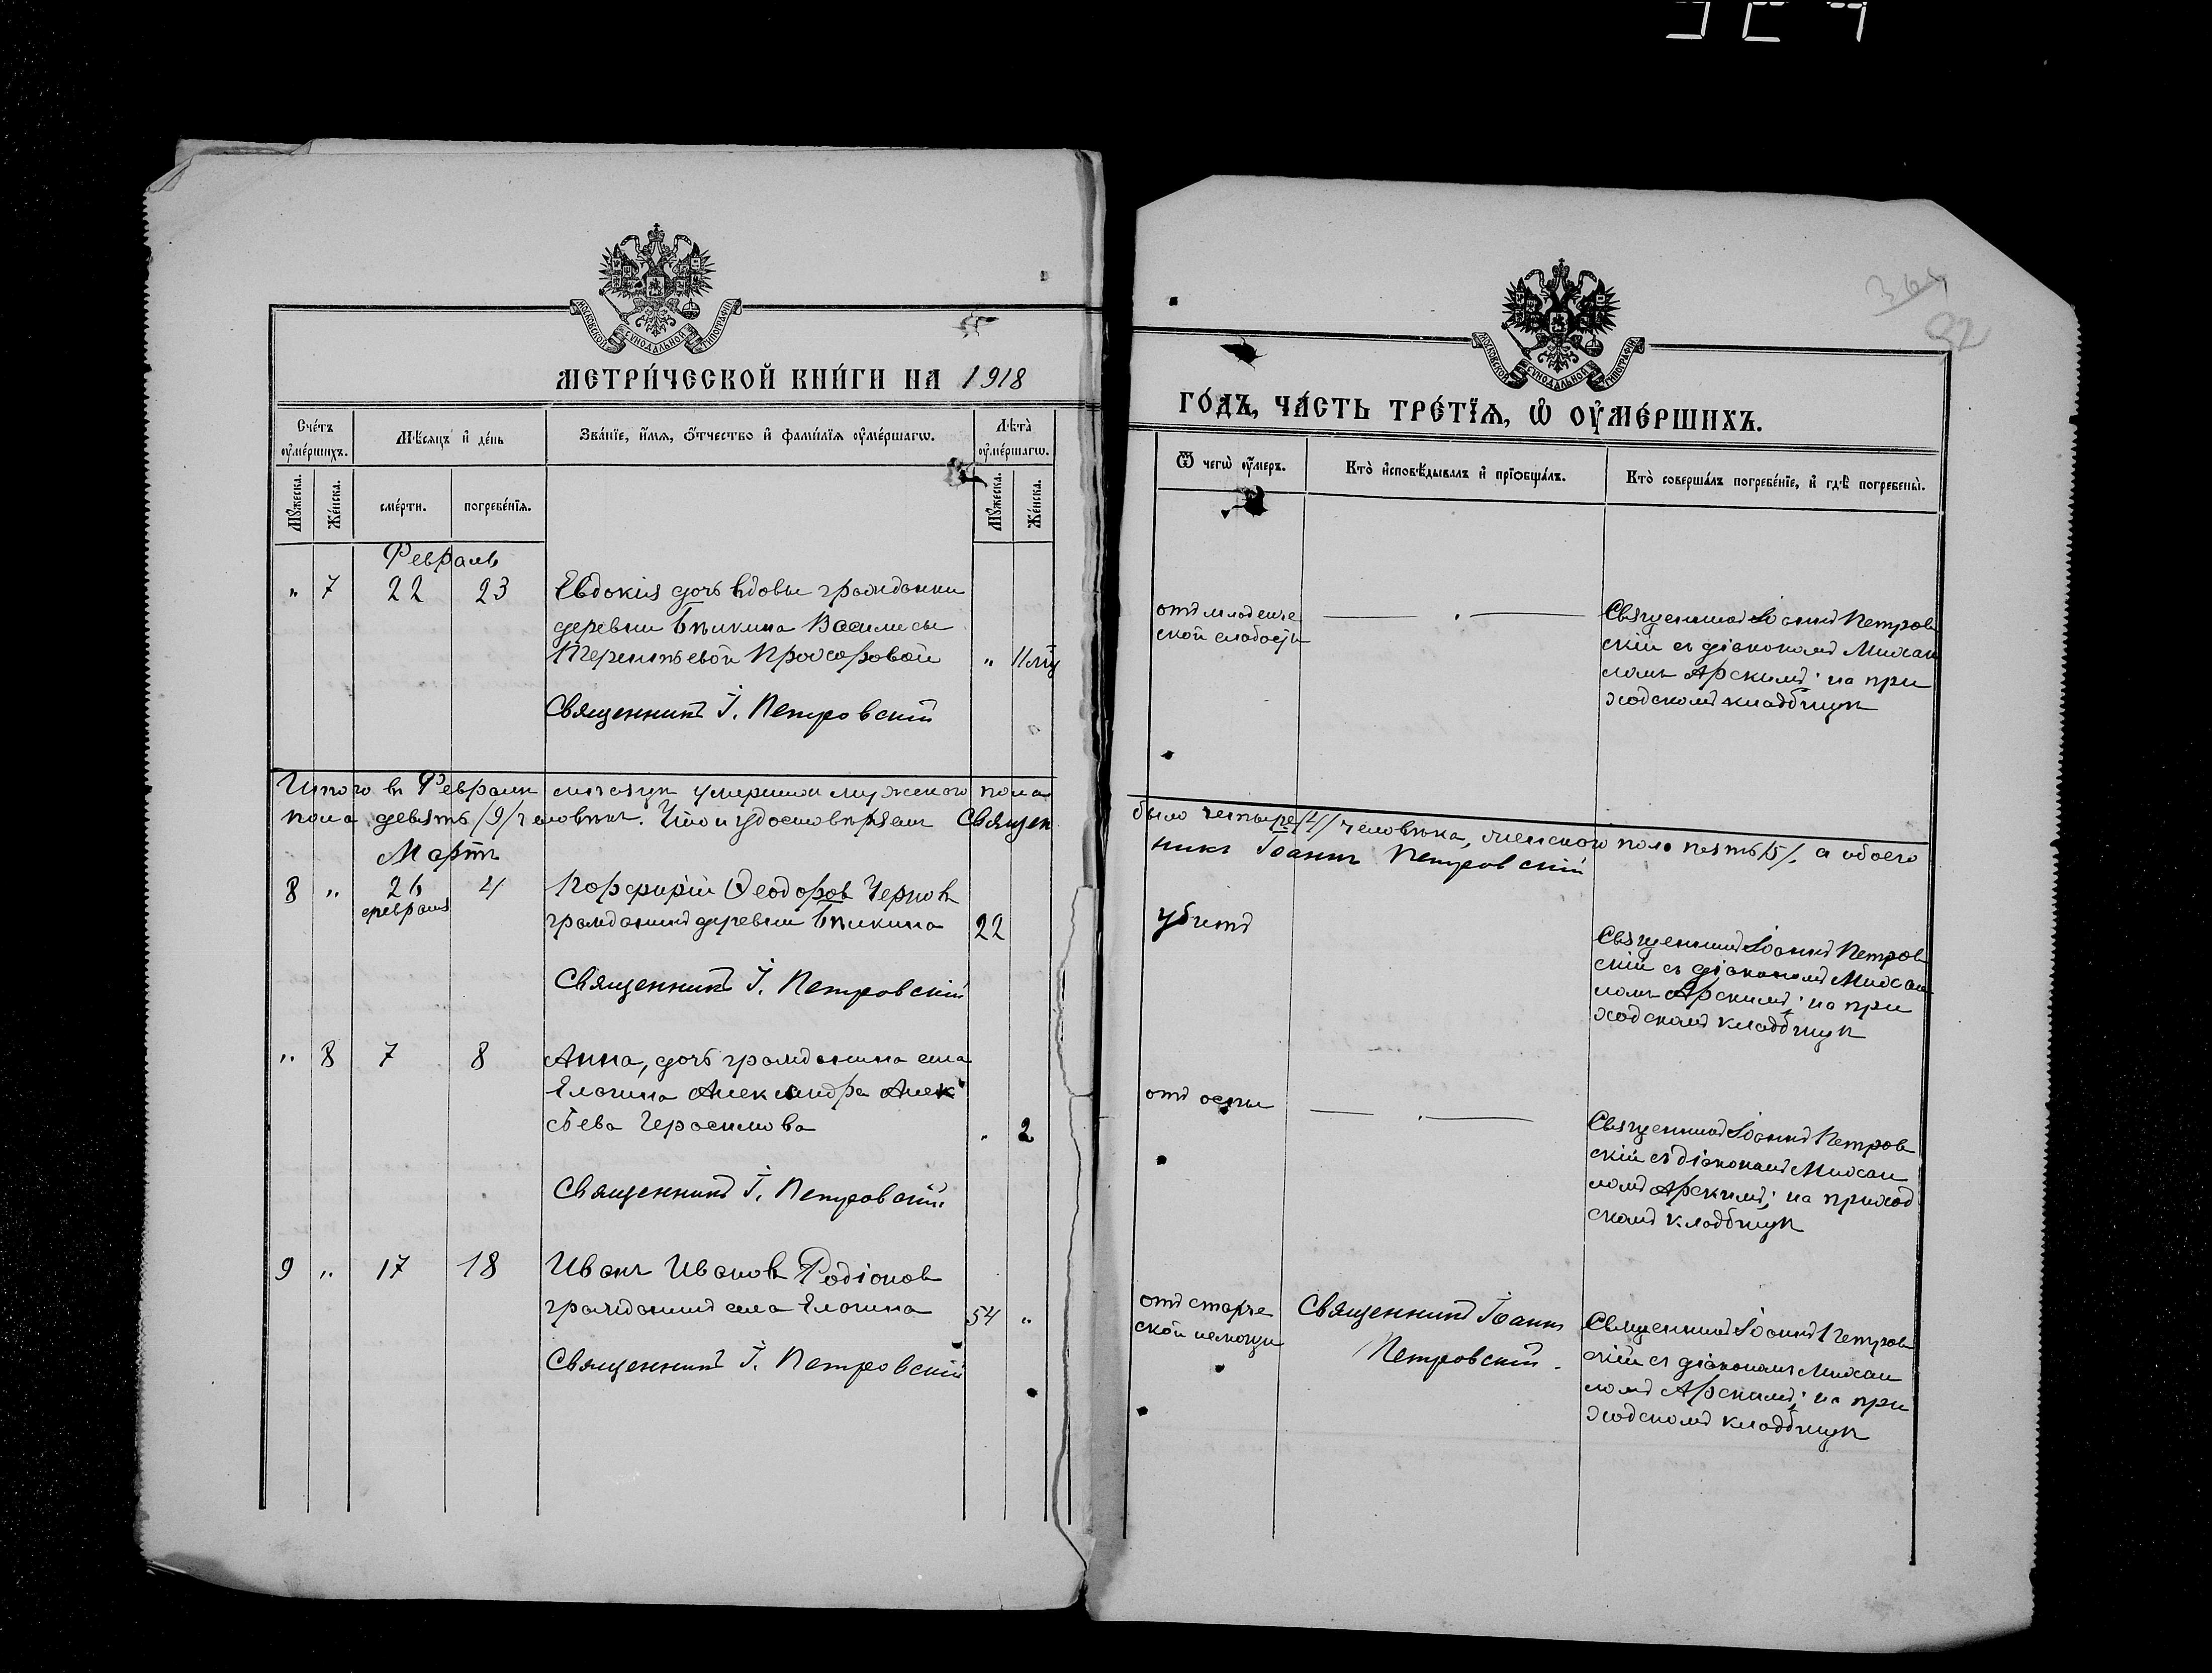 МОСКОВСКОЙ СѴНОДАЛЬНОЙ ТИПОГРАФІИ
МЕТРИ́ЧЕСКОЙ КНИ́ГИ НА 1918
Сче́тъ оу҆ме́ршихъ.
Мѣ́сяцъ и҆ де́нь
Зва́нїе, и҆́мѧ, ѻ҆́тчество и҆ фами́лїѧ оу҆ме́ршагѡ.
Лѣ́та оу҆ме́ршагѡ.
Мꙋ́жеска.
Же́нска.
сме́рти.
погребе́нїѧ.
Мꙋ́жеска.
Же́нска.
Февраль
" 7 22 23 Евдокія дочь вдовы гражданки
деревни Бѣикина Василисы
Терентьевой Прохоровой "
Священникъ І. Петровскій
Итого въ Февралѣ мѣсяцѣ умершихъ мужского пола
пола девять /9/ человѣкъ. Что и удостовѣряетъ Священ
Мартъ
8 " 26 4 Порфирій Ѳеодоровъ Черновъ
февраля гражданинъ деревни Бѣикина 22
Священникъ І. Петровскій
" 8 7 8 Анна, дочь гражданина села
Елагина Александра Алек
сѣева Герасимова " 2
Священникъ І. Петровскій
9 " 17 18 Иванъ Ивановъ Родіоновъ
гражданинъ села Елагина 54 "
Священникъ І. Петровскій
92
МОСКОВСКОЙ СѴНОДАЛЬНОЙ ТИПОГРАФІИ
ГО́ДЪ, ЧА́СТЬ ТРЕ́ТЇѦ, Ѡ҆ ОУ҆МЕ́РШИХЪ.
Ѿ чегѡ̀ оу҆́меръ.
Кто̀ и҆сповѣ́дывалъ и҆ прїѡбща́лъ.
Кто̀ соверша́лъ погребе́нїе, и҆ гдѣ̀ погребены̀.
отъ младенче
ской слабости
Священникъ Іоаннъ Петров
скій съ діакономъ Михаи
ломъ Арскимъ; на при
ходскомъ кладбищѣ
было четыре /4/ человѣка, женского пола пять /5/, а обоего
никъ Іоаннъ Петровскій
убитъ
Священникъ Іоаннъ Петров
скій съ діакономъ Михаи
ломъ Арскимъ; на при
ходскомъ кладбищѣ
отъ оспы
Священникъ Іоаннъ Петров
скій съ діакономъ Михаи
ломъ Арскимъ; на приход
скомъ кладбищѣ
отъ старче
ской немощи
Священникъ Іоаннъ
Петровскій.
Священникъ Іоаннъ Петров
скій съ діакономъ Михаи
ломъ Арскимъ; на при
ходскомъ кладбищѣ